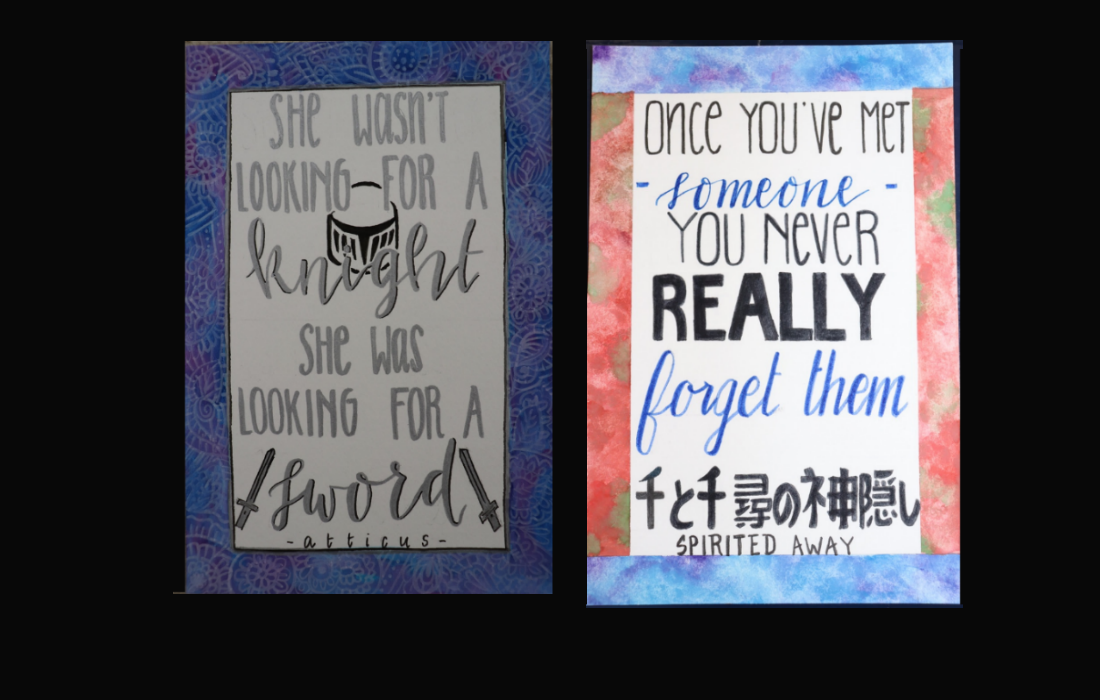 SHE WASN'T
LOOKING FOR A
knight
SHE WAS
LOOKING FOR A
sword
-atticus-
ONCE YOU'VE MET
- someone -
YOU NEVER
REALLY
forget them
千と千尋の神隠し
SPIRITED AWAY